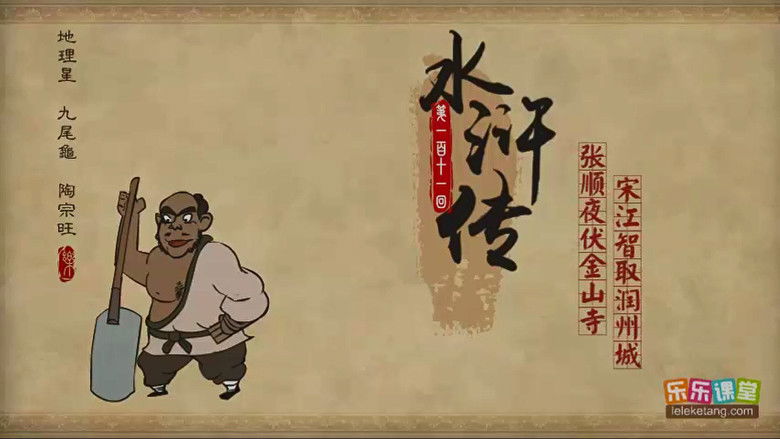 地理星 九尾龜 陶宗旺
水浒传
第一百十一回
张顺夜伏金山寺
宋江智取润州城
乐乐课堂
leleketang.com